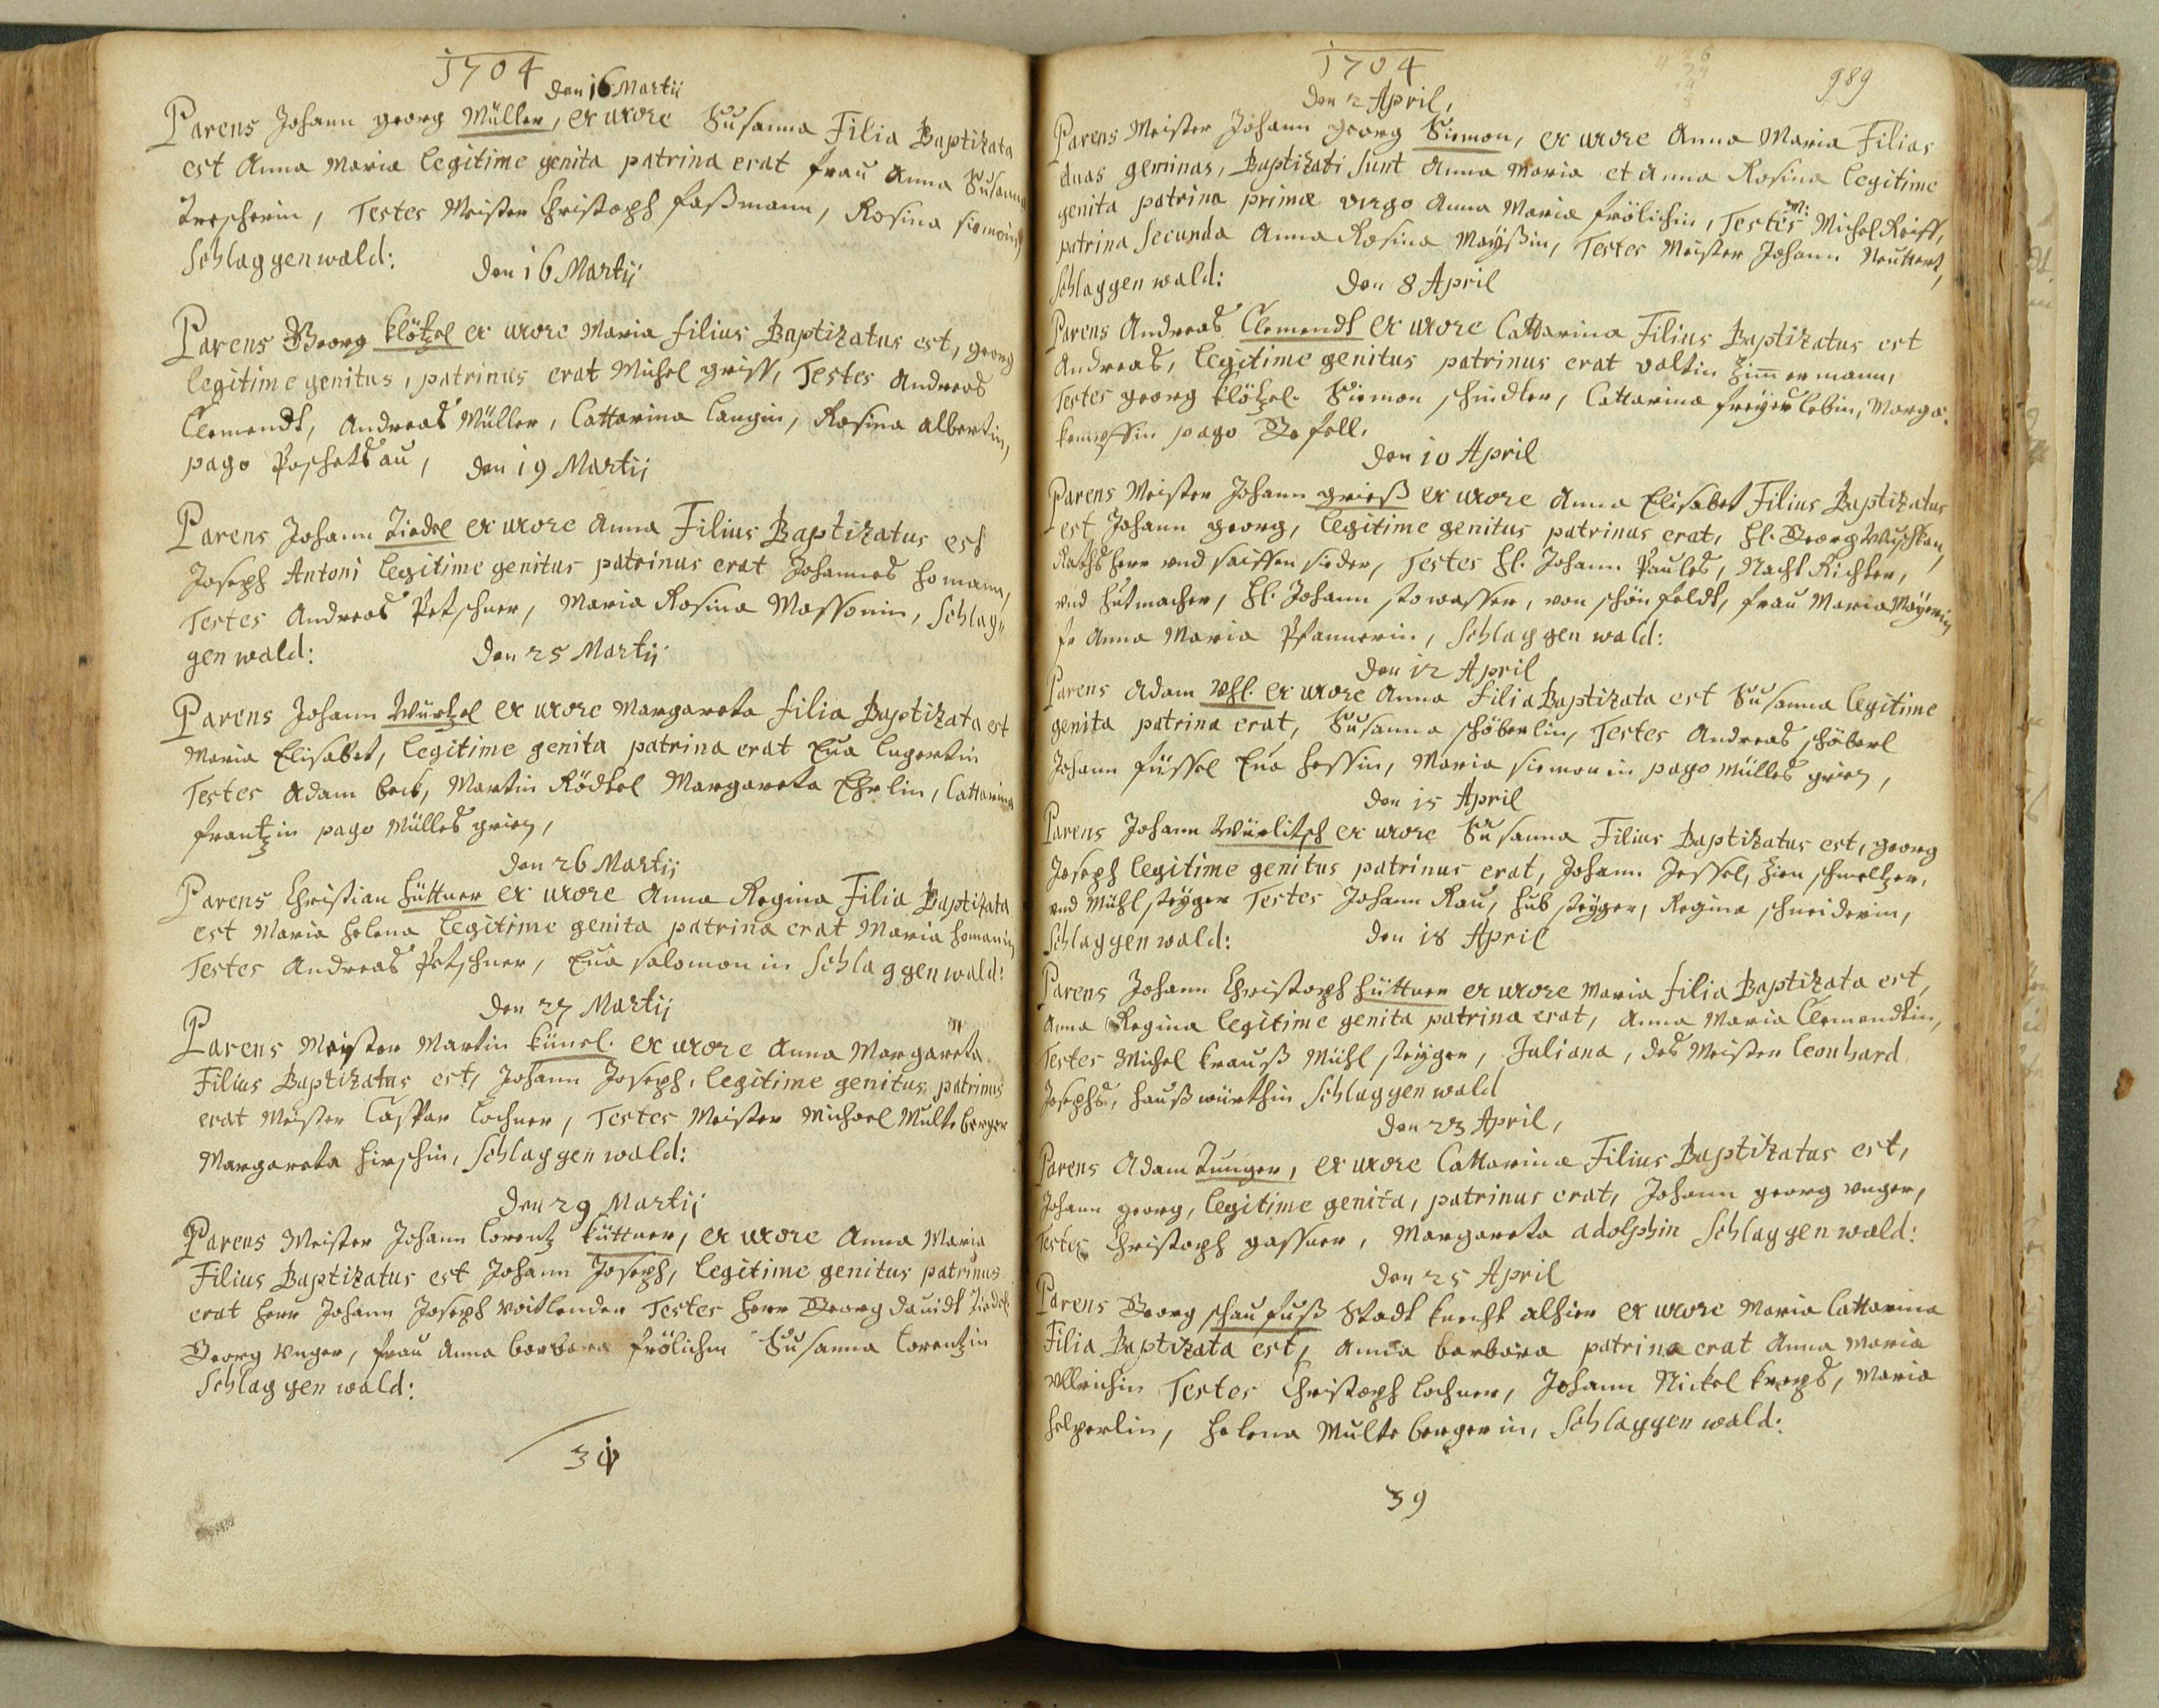 1704
den 16 Martii
Parens Johann georg Müller, ex uxore Susanna Filia Baptizata
est Anna Maria legitime genita patrina erat frau Anna Susanna
Trescherin, Testes Meister Christoph faßmann, Rosina siemonin
Schlaggenwald:
den 16 Martij
Parens Georg Klötzel ex uxore Maria filius Baptizatus est, georg
legitime genitus, patrinus erat Michel griss, Testes Andreas
Clementt, Andreas Müller, Cattarina Langin, Rosina albertin,
pago Poschetsau,
den 19 Martij
Parens Johann Tiedel ex uxore Anna Filius Baptizatus est
Joseph Antoni legitime genitus patrinus erat Johannes homann,
Testes Andreas Petschner, Maria Rosina Massonin, Schlag„
genwald:
den 25 Martij
Parens Johann Wurtzel ex uxore Margareta filia Baptizata est
Maria Elisabet, legitime genita patrina erat Eua
Testes Adam beck, Martin Rödtel Margareta Ehrlin, Cattarina
frantzin pago Mülles grien,
den 26 Martij
Parens Christian hüttner ex uxore Anna Regina Filia Baptizata
est Maria helena legitime genita patrina erat Maria homanin
Testes Andreas Petschner, Eua salomonin Schlaggenwald:
den 27 Martij
Parens Meister Martin Künel. ex uxore Anna Margareta
Filius Baptizatus est, Johann Joseph, legitime genitus, patrinus
erat Meister Caspar Lochner, Testes Meister Michael Multeberger
Margareta hirschin, Schlaggenwald:
den 29 Martij
Parens Meister Johann Lorentz Küttner, ex uxore Anna Maria
Filius Baptizatus est Johann Joseph, legitime genitus patrinus
erat herr Johann Joseph Voitlender Testes herr Georg dauidt Tiedel
Georg Vnger, frau Anna barbara frölichin Susanna Lorentzin
Schlaggenwald:
1704
989
den 2 April,
Parens Meister Johann georg Siemon, ex uxore Anna Maria Filias
duas geminas, Baptizati sunt Anna Maria et Anna Rosina legitime
genita patrina primæ virgo Anna Maria frölichin, Testes M: Michel Reiss,
patrina secunda Anna Rosina Maÿßin, Testes Meister Johann
Schlaggenwald:
den 8 April
Parens Andreas Clementt ex uxore Cattarina Filius Baptizatus est
Andreas, legitime genitus patrinus erat Valtin Zimermann,
Testes georg Klötzel. Siemon schindler, Cattarina Marga:
pago
den 10 April
Parens Meister Johann grieß ex uxore Anna Elisabet Filius Baptizatus
est Johann georg, legitime genitus patrinus erat, H. Georg
Raths herr vnd saiffen sieder, Testes H. Johann Paules, Nacht Richter,
vnd hutmacher, H. Johann stowasser, von schönfeldt, frau Maria Maÿerin
fr Anna Maria Pfannerin, Schlaggenwald:
den 12 April
Parens Adam Vhl. ex uxore Anna filia Baptizata est Susanna legitime
genita patrina erat, Susanna schöberlin, Testes Andreas schöberl
Johann füssel Eua hessin, Maria siemonin pago Mülles grien,
den 15 April
Parens Johann Würlitsch ex uxore Susanna Filius Baptizatus est, georg
Joseph legitime genitus patrinus erat, Johann Jessel, Zien schmeltzer,
vnd Mühl steÿger Testes Johann Rau, hub steÿger, Regina schneiderin,
Schlaggenwald:
den 18 April
Parens Johann Christoph hüttner ex uxore Maria filia Baptizata est,
Anna Regina legitime genita patrina erat, Anna Maria Clementtin,
Testes Michel Krauß Mühl steÿger, Juliana, des Meister Leonhard
Josephs, haußwürthin Schlaggenwald
den 23 April,
Parens Adam Tunger, ex uxore Cattarina Filius Baptizatus est,
Johann georg, legitime genita, patrinus erat, Johann georg vnger,
Testes Christoph gassner, Margareta adolphin Schlaggenwald:
den 25 April
Parens Georg schaufuß Stadt Knecht alhier ex uxore Maria Cattarina
Filia Baptizata est, Anna barbara patrina erat Anna Maria
Vllrichin Testes Christoph Lochner, Johann Nickel Kreps, Maria
helperlin, helena Multebergerin, Schlaggenwald:
39